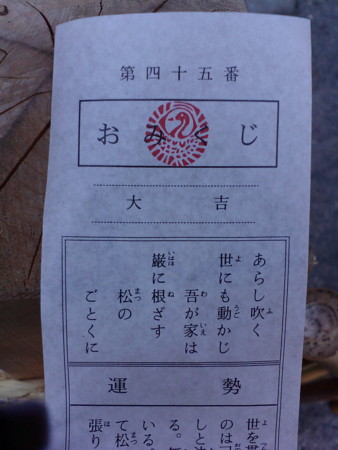 第四十五番
おみくじ
大吉
あらし吹く
世にも動かじ
吾が家は
巌に根ざす
松の
ごとくに
運勢
世を
のは
しと
る。
いる
て松
張り